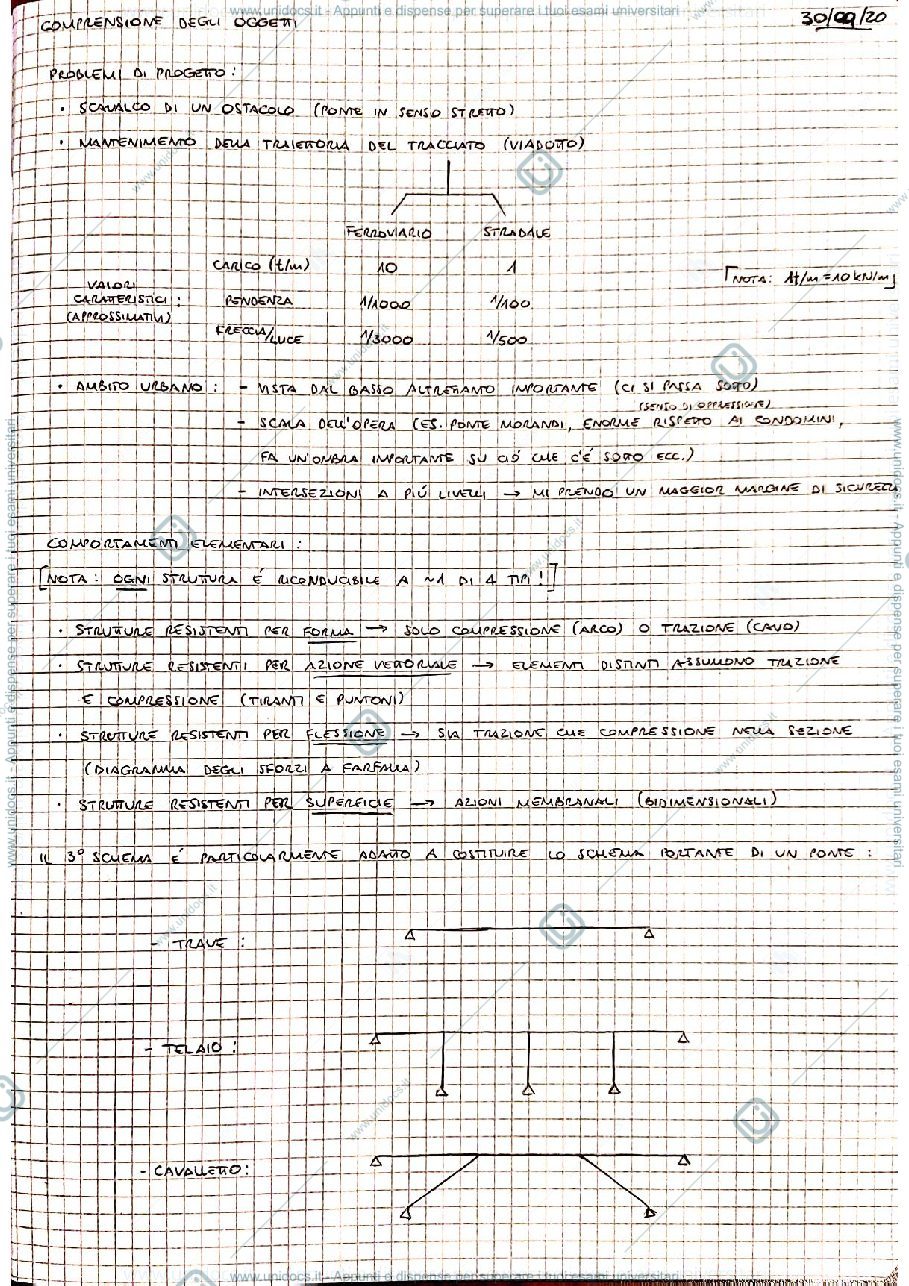 www.unidocs.it - Appunti e dispense per superare i tuoi esami universitari
COMPRENSIONE DEGLI OGGETTI 30/09/20
PROBLEMI DI PROGETTO:
· SCAVALCO DI UN OSTACOLO (PONTE IN SENSO STRETTO)
· MANTENIMENTO DELLA TRAIETTORIA DEL TRACCIATO (VIADOTTO)
FERROVIARIO STRADALE
CARICO (t/m) 10 1
NOTA: 1t/m = 10 kN/m
VALORI
CARATTERISTICI :
(APPROSSIMATIVI)
PENDENZA 1/1000 1/100
FRECCIA/LUCE 1/3000 1/500
· AMBITO URBANO : - VISTA DAL BASSO ALTRETTANTO IMPORTANTE (CI SI PASSA SOTTO)
(SENSO DI OPPRESSIONE)
- SCALA DELL'OPERA (ES. PONTE MORANDI, ENORME RISPETTO AI CONDOMINI,
FA UN'OMBRA IMPORTANTE SU CIÓ CHE C'É SOTTO ECC.)
- INTERSEZIONI A PIÚ LIVELLI → MI PRENDO UN MAGGIOR MARGINE DI SICUREZZA
COMPORTAMENTI ELEMENTARI :
[NOTA : OGNI STRUTTURA É RICONDUCIBILE A ~1 DI 4 TIPI !]
· STRUTTURE RESISTENTI PER FORMA → SOLO COMPRESSIONE (ARCO) O TRAZIONE (CAVO)
· STRUTTURE RESISTENTI PER AZIONE VETTORIALE → ELEMENTI DISTINTI ASSUMONO TRAZIONE
E COMPRESSIONE (TIRANTI E PUNTONI)
· STRUTTURE RESISTENTI PER FLESSIONE → SIA TRAZIONE CHE COMPRESSIONE NELLA SEZIONE
(DIAGRAMMA DEGLI SFORZI A FARFALLA)
· STRUTTURE RESISTENTI PER SUPERFICIE → AZIONI MEMBRANALI (BIDIMENSIONALI)
IL 3° SCHEMA É PARTICOLARMENTE ADATTO A COSTITUIRE LO SCHEMA PORTANTE DI UN PONTE :
- TRAVE :
- TELAIO :
- CAVALLETTO :
www.unidocs.it - Appunti e dispense per superare i tuoi esami universitari